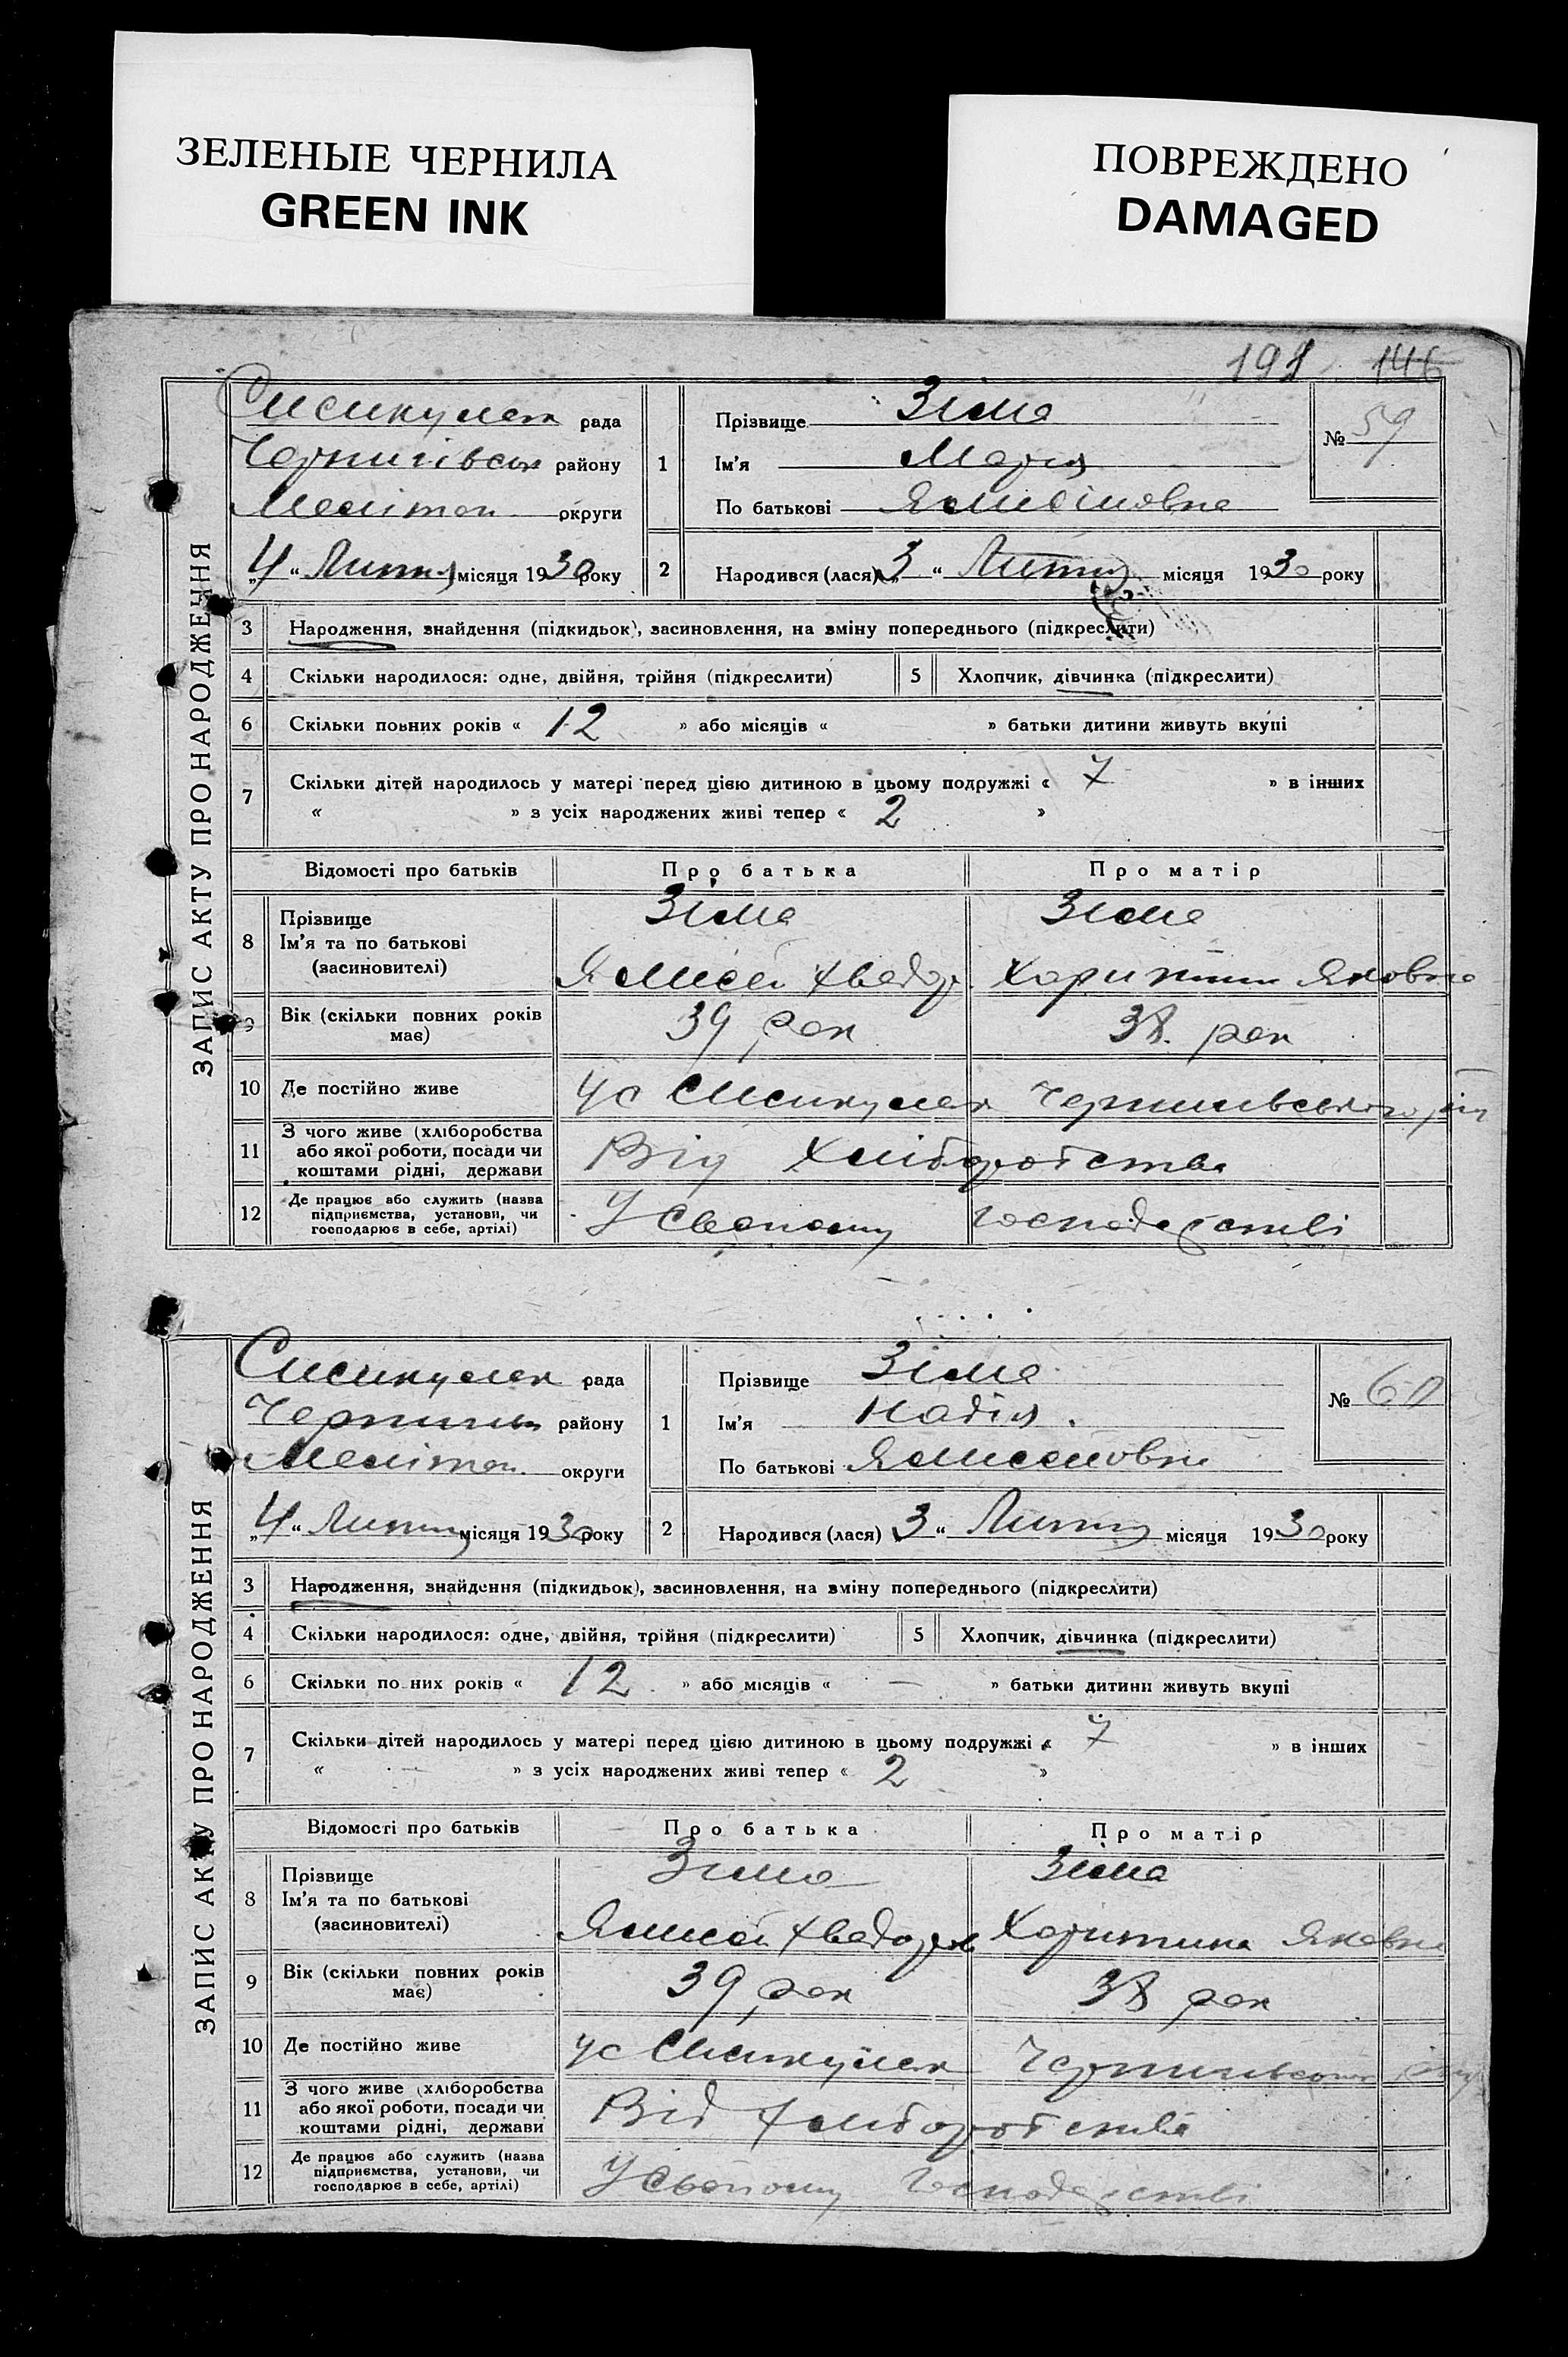 ЗЕЛЕНЫЕ ЧЕРНИЛА
GREEN INK
ПОВРЕЖДЕНО
DAMAGED
198 146
ЗАПИС АКТУ ПРО НАРОДЖЕННЯ
рада
Чернигівськ району
Мелітоп. округи
„4“ Лютня місяця 1930 року
1
Прізвище Зіма
Ім'я Марія
По батькові
№ 59
2 Народився (лася) „3“ Лютня місяця 1930 року
3 Народження, знайдення (підкидьок), засиновлення, на зміну попереднього (підкреслити)
4 Скільки народилося: одне, двійня, трійня (підкреслити) 5 Хлопчик, дівчинка (підкреслити)
6 Скільки повних років « 12 » або місяців « » батьки дитини живуть вкупі
7 Скільки дітей народилось у матері перед цією дитиною в цьому подружжі « 7 » в інших
« » з усіх народжених живі тепер « 2 »
Відомості про батьків Про батька Про матір
8 Прізвище Зіма Зіма
Ім'я та по батькові
(засиновителі) Хведор. Харитина Яковна
9 Вік (скільки повних років має) 39 рок 38 рок
10 Де постійно живе у с
11 З чого живе (хліборобства
або якої роботи, посади чи
коштами рідні, держави Від Хліборобства
12 Де працює або служить (назва
підприємства, установи, чи
господарює в себе, артілі) У Своєому господарстві
ЗАПИС АКТУ ПРО НАРОДЖЕННЯ
рада
району
Мелітоп. округи
„4“ Лютня місяця 1930 року
1
Прізвище Зіма
Ім'я Надія.
По батькові
№ 60
2 Народився (лася) 3“ Лютня місяця 1930 року
3 Народження, знайдення (підкидьок), засиновлення, на зміну попереднього (підкреслити)
4 Скільки народилося: одне, двійня, трійня (підкреслити) 5 Хлопчик, дівчинка (підкреслити)
6 Скільки по них років « 12 » або місяців « — » батьки дитини живуть вкупі
7 Скільки дітей народилось у матері перед цією дитиною в цьому подружжі « 7 » в інших
« » з усіх народжених живі тепер « 2 »
Відомості про батьків Про батька Про матір
8 Прізвище Зіма Зіма
Ім'я та по батькові
(засиновителі) Хведоров Харитина Яковна
9 Вік (скільки повних років має) 39 рок 38 рок
10 Де постійно живе у с
11 З чого живе (хліборобства
або якої роботи, посади чи
коштами рідні, держави Від Хліборобства
12 Де працює або служить (назва
підприємства, установи, чи
господарює в себе, артілі) У Своєому господарстві